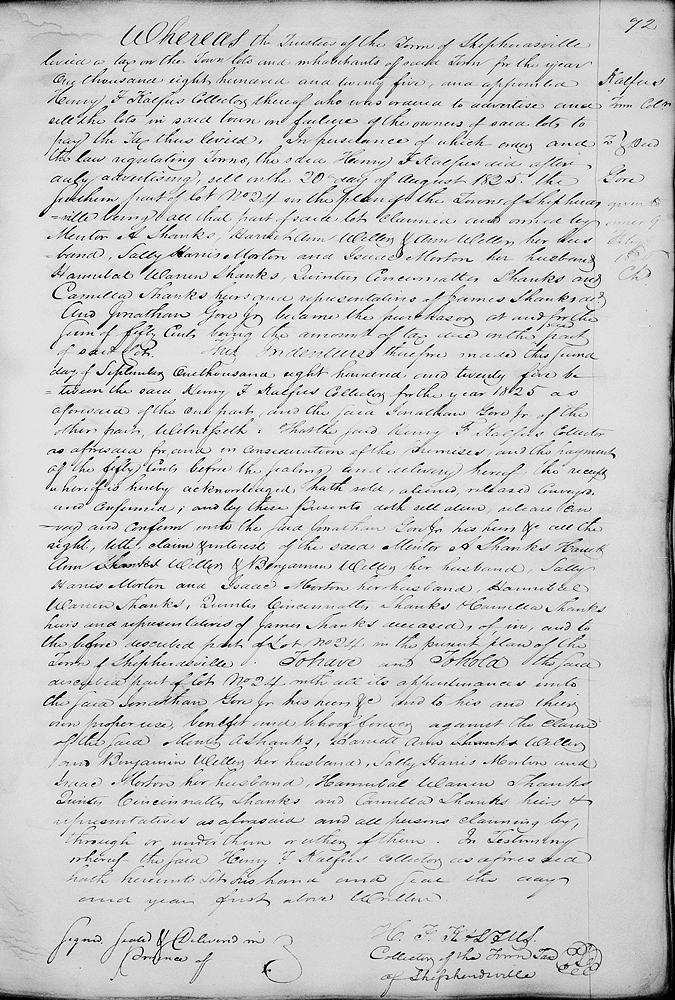 92
Whereas the Trustees of the Town of Shepherdsville
levied a tax on the Town lots and inhabitants of said Town for the year
One thousand eight hundred and twenty five, and appointed
Henry F Kalfus Collector thereof who was ordered to advertise and
sell the lots in said town on failure of the owners of said lots to
pay the Tax thus levied. In persuance of which order and
the law regulating Towns, the said Henry F Kalfus did after
duly advertising, sell on the 20th day of August 1825. the
part of lot No 24 in the plan of the Town of Shepherds
=ville being all that part of said lot claimed and owned by
Mentor A Shanks, Harriet Ann Welley & Ann Welley her hus
band, Sally Harris Morton and Isaac Morton her husband
Hannibal Waren Shanks, Quintus Cincinnattus Shanks and
Camilla Shanks heirs and representatives of James Shanks decd
And Jonathan Gore Jr became the purchaser at and for the
Sum of fifty Cents being the amount of tax due on the said part
of said Lot. This Indenture therefore made this second
day of September One thousand eight hundred and twenty five be
=tween the said Henry F Kalfus Collector for the year 1825 as
aforesaid of the one part, and the said Jonathan Gore Jr of the
other part, Witnesseth. That the said Henry F. Kalfus Collector
as aforesaid for and in consideration of the premises, and the payment
of the fifty Cents before the sealing and delivery hereof the receipt
whereof is hereby acknowledged, hath sold, aliened, released Conveyed
and Confirmed; and by these presents doth sell alien, release Con
=vey and confirm unto the said Jonathan Gore Jr his heirs &c all the
right, title, claim & interest of the said Mentor A Shanks Harriet
Ann Shanks Welley & Benjamin Welley her husband, Sally
Harris Morton and Isaac Morton her husband, Hannibal
Waren Shanks, Quintus Cincinnattus Shanks & Camilla Shanks
heirs and representatives of James Shanks deceased, of, in, and to
the before described part of Lot No 24 in the present plan of the
Town of Shepherdsville. To have and To hold the said
described part of lot No 24 with all its appurtenances unto
the said Jonathan Gore Jr his heirs &c and to his and their
own proper use, benefit and behoof forever against the claim
of the said Mentor A Shanks, Harriett Ann Shanks Welley
and Benjamin Welley her husband, Sally Harris Morton and
Isaac Morton her husband, Hannibal Waren Shanks
Quintus Cincinnattus Shanks and Camilla Shanks heirs &
representatives as aforesaid and all persons claiming by,
through or under them or either of them. In Testimony
whereof the said Henry F Kalfus Collector as aforesaid
hath hereunto set his hand and seal the day
and year first above Written.
Signed Sealed & Delivered in
presence of
H. F. Kalfus.
Collector of the Town Tax
of Shepherdsville
Kalfus
Town Colr
To } Deed
Gore